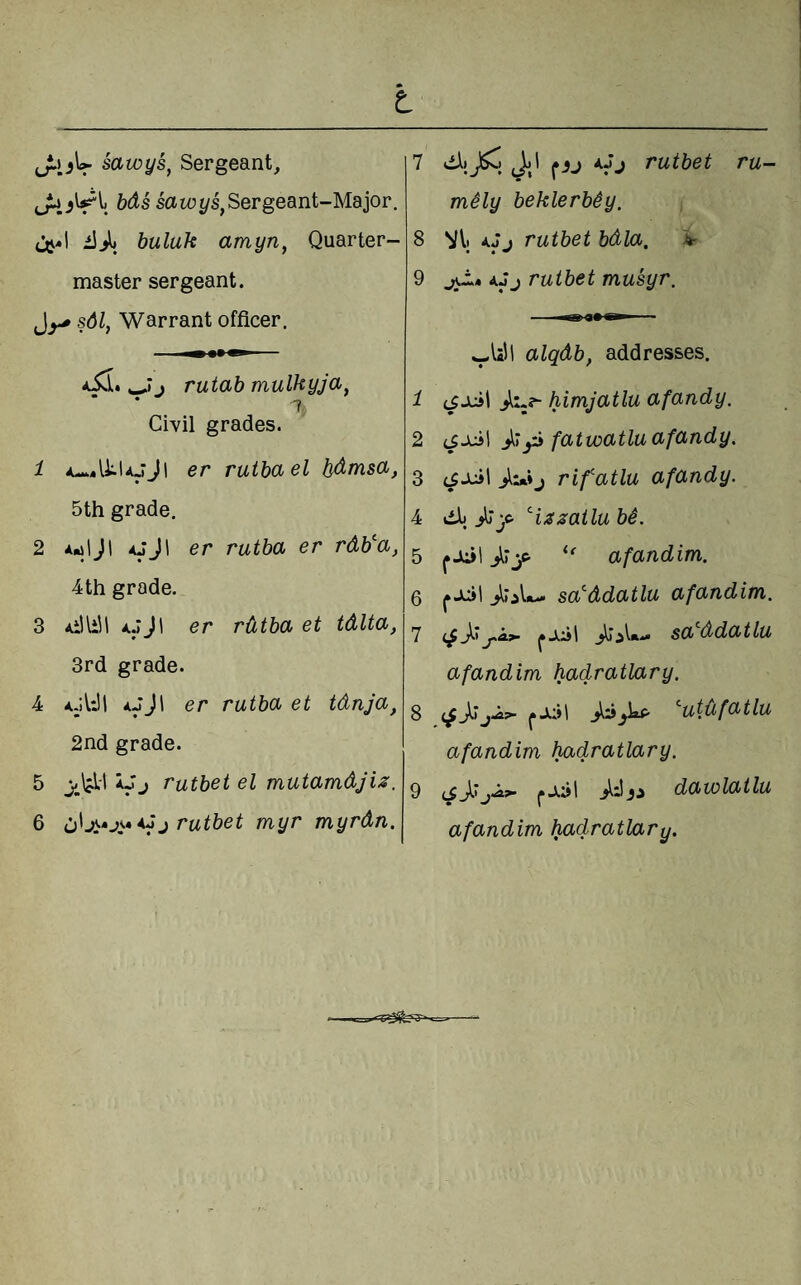 غ
جاويش sawyś, Sergeant,
باشجاويش bâś sawyś, Sergeant-Major.
بلوك امين buluk amyn, Quarter-
master sergeant.
صول ṣôl, Warrant officer.
رتب ملكيه rutab mulkyja,
Civil grades.
1 الرتبه الخامسه er rutba el ḫâmsa,
5th grade.
2 الرتبه الرابعه er rutba er râbʿa,
4th grade.
3 الرتبه الثالثه er rûtba et tâlta,
3rd grade.
4 الرتبه الثانيه er rutba et tânja,
2nd grade.
5 رتبة المتمايز rutbet el mutamâjiz.
6 رتبه ميرميران rutbet myr myrân.
7 رتبه روم ايلى بكلربك rutbet ru-
mêly beklerbêy.
8 رتبه بالا rutbet bâla.
9 رتبه مشير rutbet muśyr.
القاب alqâb, addresses.
1 حميتلو افندى ḥimjatlu afandy.
2 فتوتلو افندى fatwatlu afandy.
3 رفعتلو افندى rifʿatlu afandy.
4 عزتلو بك ʿizzatlu bê.
5 عزتلو افندم “ afandim.
6 سعادتلو افندم saʿâdatlu afandim.
7 سعادتلو افندم حضرتلرى saʿâdatlu
afandim ḥaḍratlary.
8 عطوفتلو افندم حضرتلرى ʿuṭûfatlu
afandim ḥaḍratlary.
9 دولتلو افندم حضرتلرى dawlatlu
afandim ḥaḍratlary.